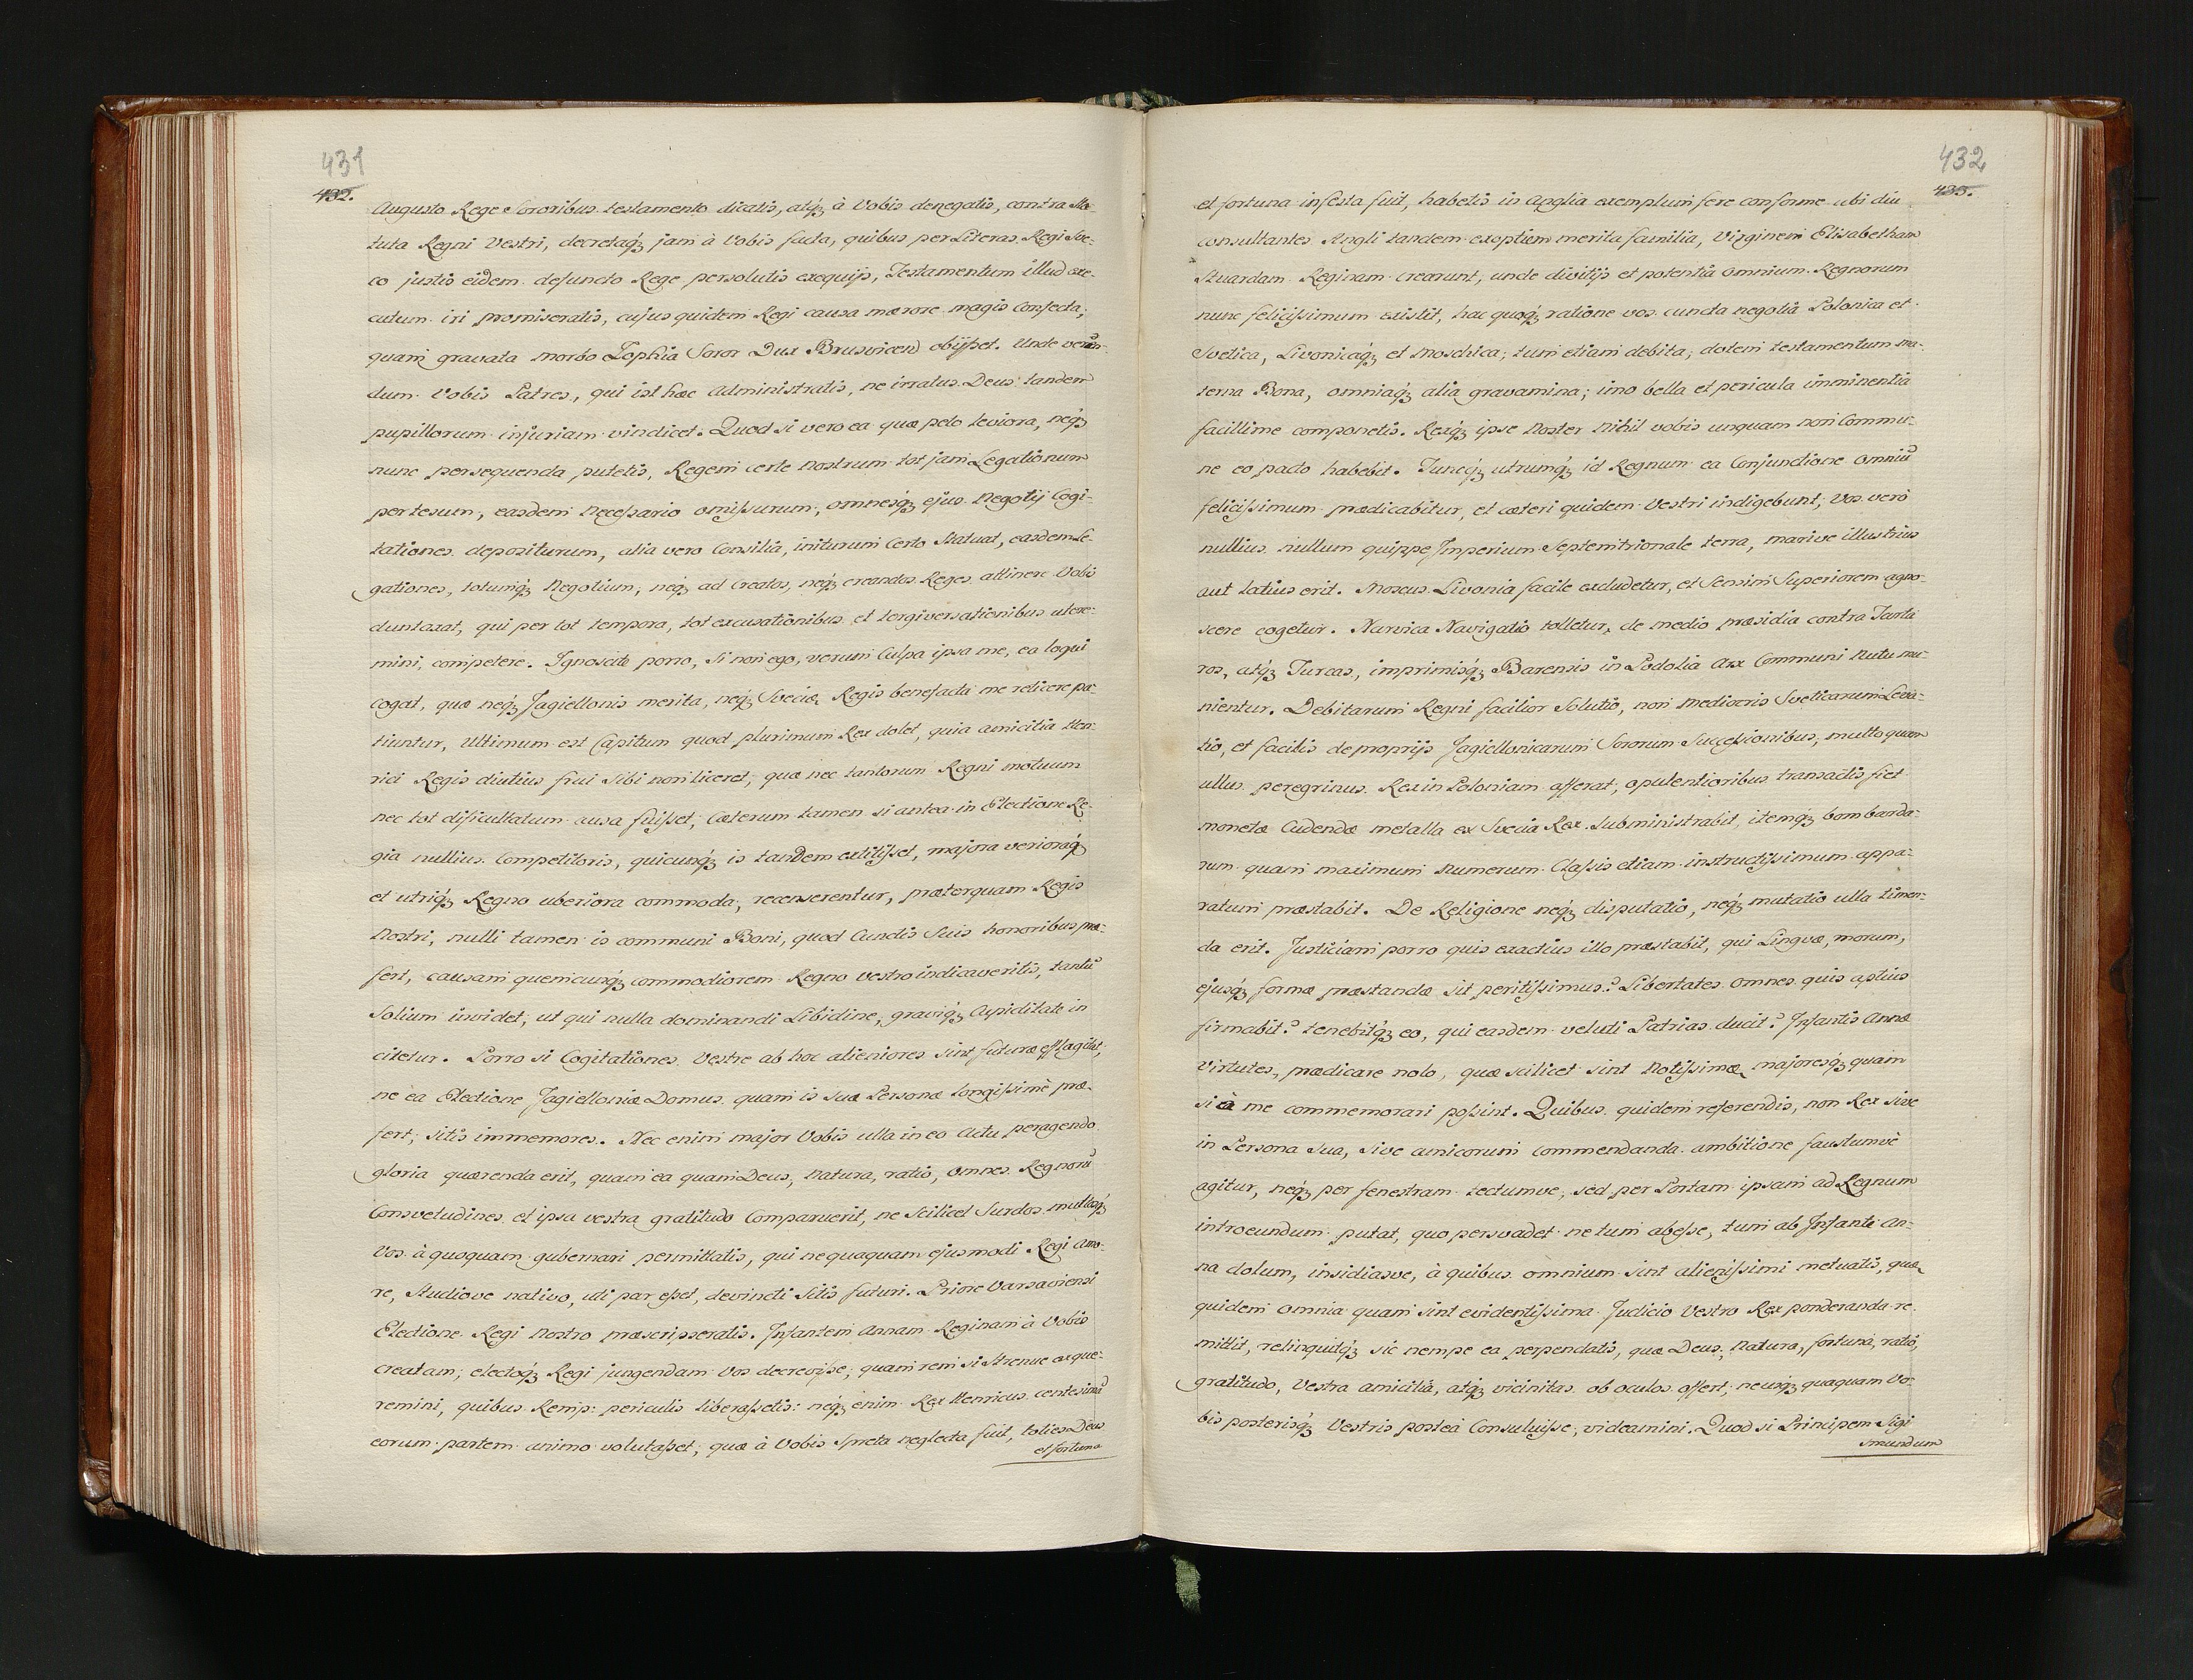 431
432.
Augusto Rege Sororibus testamento dicatis, atq́ꝫ à Vobis denegatis, contra sta-
tuta Regni Vestri, decretaq́ꝫ jam à Vobis facta, quibus per Literas Regi Sve-
co justis eidem defuncto Rege persolutis exequijs, Testamentum illud exe-
cutum iri promiseratis, cujus quidem Regi causa mærore magis Confecta,
quam gravata morbo Zophia Soror Dux Brusvicen obijsset. Unde veren-
dum Vobis Patres, qui ist hæc administratis, ne irratus Deus tandem
pupillorum injuriam vindicet. Quod si vero ea quæ peto leviora, neq́ꝫ
nunc persequenda putetis, Regem certe Nostrum tot jam Legationum
pertesum, easdem Necessario omissurum, omnesq́ꝫ ejus Negotij Cogi-
tationes depositurum, alia vero Consilia, initurum Certo Statuat, easdem Le-
gationes, totumq́ꝫ Negotium, neq́ꝫ ad Creatos, neq́ꝫ creandos Reges attinere Vobis
duntaxat, qui per tot tempora, tot excusationibus et tergiversationibus utere-
mini, competere. Ignoscite porro, Si non ego, verum Culpa ipsa me, ea loqui
cogat, quæ neq́ꝫ Jagiellonis merita, neq́ꝫ Sveciæ Regis benefacta me reticere pa-
tiuntur, Ultimum est Capitum quod plurimum Rex dolet, quia amicitia Hen-
rici Regis diutius frui Sibi non liceret, quæ nec tantorum Regni motuum
nec tot dificultatum causa fuisset, Cæterum tamen si antea in Electione Re-
gia nullius Competitoris, quicunq́ꝫ is tandem extitisset, majora verioraq́ꝫ
et utriq́ꝫ Regno uberiora commoda, recenserentur, præterquam Regis
Nostri, nulli tamen is communi Boni, quod Cunctis Suis honoribus præ-
fert, causam quemcunq́ꝫ commodiorem Regno vestro indicaveritis, tantū
Solium invidet, ut qui nulla dominandi Libidine, graviq́ꝫ Cupiditate in
citetur. Porro si Cogitationes Vestre ab hoc alieniores sint futuræ efflagitat,
ne ea Electione Jagielloniæ Domus quam is Suæ Personæ longissimè præ-
fert, sitis immemores. Nec enim major Vobis ulla in eo Actu peragendo
gloria quærenda erit, quam ea quam Deus, Natura, ratio, omnes Regnorū
Consvetudines et ipsa vestra gratitudo Comparuerit, ne Scilicet Surdos mutosq́ꝫ
Vos à quoquam gubernari permittatis, qui nequaquam ejusmodi Regi Amo-
re, Studiove nativo, uti par esset, devincti Sitis futuri. Priore Varsaviensi
Electione Regi Nostro præscripseratis. Infantem Annam Reginam à Vobis
creatam, electoq́ꝫ Regi jungendam Vos decrevisse, quam rem si Strenue exque-
remini, quibus Remp: periculis liberassetis: neq́ꝫ enim Rex Henricus centesimā
eorum partem animo volutasset, quæ à Vobis Spreta neglecta fuit, toties Deus
et fortuna
432
433.
et fortuna infesta fuit, habetis in Anglia exemplum fere conforme ubi diu
consultantes Angli tandem ex optiem merita familia, Virginem Elisabetham
Stuardam Reginam crearunt, unde divitijs et potentia omnium Regnorum
nunc felicissimum existit, hac quoq́ꝫ ratione vos cuncta negotia Polonica et
Svetica, Livonicaq́ꝫ et Moschica, tum etiam debita, dotem testamentum ma-
terna Bona, omniaq́ꝫ alia gravamina, imo bella et pericula imminentia
facillime componetis. Rexq́ꝫ ipse Noster Nihil vobis unquam non Commu-
ne eo pacto habebit. Tuncq́ꝫ utrumq́ꝫ id Regnum ea Conjunctione omniū
felicissimum prædicabitur, et cæteri quidem Vestri indigebunt, Vos verò
nullius nullum quippe Imperium Septemtrionale terra, marive illustrius
aut latius erit. Moscus Livonia facile excludetur, et Sensim Superiorem agno-
scere cogetur. Narvica Navigatio tolletur, de medio præsidia contra Tarta
ros, atq́ꝫ Turcas, imprimisq́ꝫ Barensis in Podolia Arx Communi Nutu mu-
nientur. Debitarum Regni facilior Solutio, non mediocris Sveticarum Leva-
tio, et facilis de proprijs Jagiellonicarum Sororum Successionibus, multo quam
ullus peregrinus Rex in Poloniam afferat, opulentioribus transactis fiet
monetæ Cudendæ metalla ex Svecia Rex subministrabit, itemq́ꝫ bombarda-
rum quam maximum Numerum Classis etiam instructissimum appa-
ratum præstabit. De Religione neq́ꝫ disputatio, neq́ꝫ mutatio ulla timen-
da erit. Justiciam porro quis exactius illo præstabit, qui Linguæ, morum,
ejusq́ꝫ formæ præstandæ sit peritissimus? Libertates omnes quis aptius
firmabit? tenebitq́ꝫ eo, qui easdem veluti Patrias ducit? Infantis Annæ
Virtutes, prædicare nolo, quæ scilicet sint Notissimæ, majoresq́ꝫ quam
si à me commemorari possint. Quibus quidem referendis, non Rex sive
in Persona sua, sive amicorum commendanda ambitione faustumvè
agitur, neq́ꝫ per fenestram tectumve, sed per Portam ipsam ad Regnum
introeundum putat, quo persvadet ne tum abesse, tum ab Infante An-
na dolum, insidiasve, à quibus omnium sint alienissimi metuatis, quæ
quidem omnia quam sint evidentissima Judicio Vestro Rex ponderanda re-
mittit, relinquitq́ꝫ sic nempe ea perpendatis, quæ Deus, Natura, fortuna, ratio,
gratitudo, Vestra amicitia, atq́ꝫ vicinitas ob oculos offert, neusq́ꝫ quaquam Vo-
bis posterisq́ꝫ Vestris posteà Consuluisse, videamini. Quod si Principem Sigi
smundum